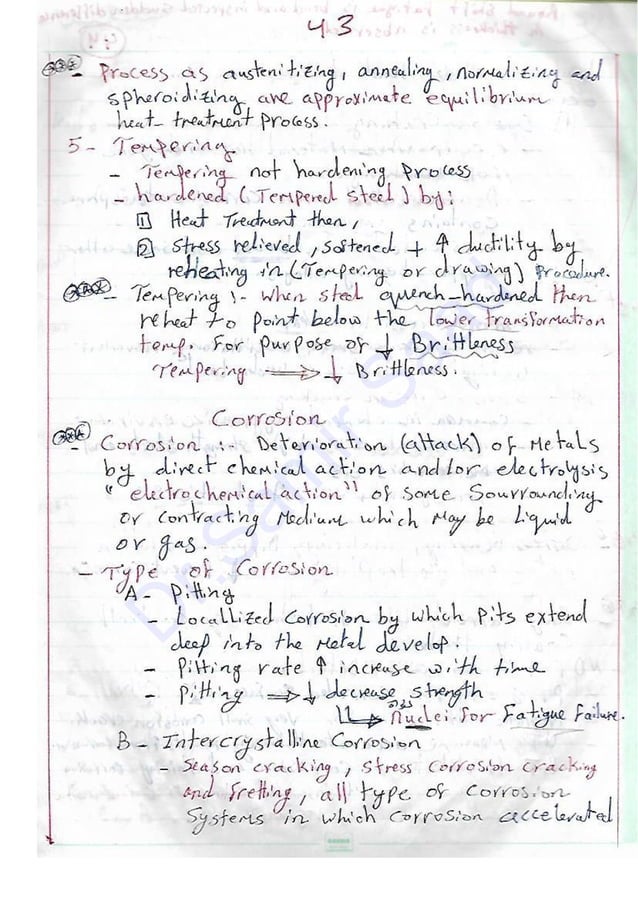 43
- Process as austenitizing, annealing, normalizing and
spheroidizing are approximate equilibrium
heat-treatment process.
5- Tempering
- Tempering not hardening process
- hardened (Tempered steel) by:
1 Heat Treatment then,
2 stress relieved, softened + ↑ ductility by
reheating in (Tempering or drawing) procedure.
- Tempering :- when steel quench-hardened then
reheat to point below the lower transformation
temp. for purpose of ↓ Brittleness
Tempering ⟹ ↓ Brittleness.
Corrosion
- Corrosion :- Deterioration (attack) of Metals
by direct chemical action and/or electrolysis
"electrochemical action" of some Sourrounding
or contracting Medium which may be Liquid
or gas.
- Type of Corrosion
A- Pitting
- Locallized corrosion by which pits extend
deep into the metal develop.
- Pitting rate ↑ increase with time
- Pitting ⟹ ↓ decrease strength
Nuclei for Fatigue Failure.
B- Intercrystalline Corrosion
- Season cracking, stress corrosion cracking
and fretting, all type of corrosion
Systems in which corrosion accelerated
Dr. Samir Saad